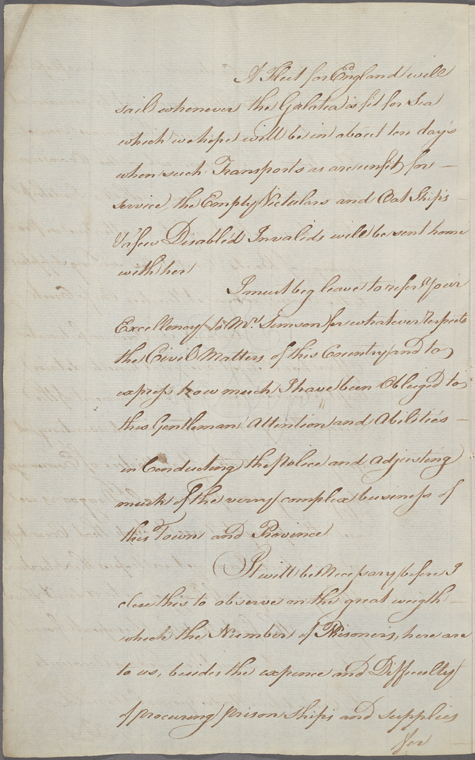 A Fleet for England will
sail whenever the Galatea is fit for Sea
which we hope will be in about ten days
when such Transports as are unfit for
Service, the Empty Victulars and Oat Ships
& a few Disabled Invalids will be sent home
with her
I must beg leave to refer Your
Excellency to Mr. Simson for whatever respects
the Civil Matters of this Country and to
express how much I have been Obliged to
this Gentleman Attention and Abilities
in Conducting the Police and Adjusting
much of the verry complex business of
this Town and Province
It will be Necessary before I
close this to observe on the great weigh
which the Number of Prisoners, here are
to us, besides the expence and Difficulty
of procuring prison Ships and supplies
for